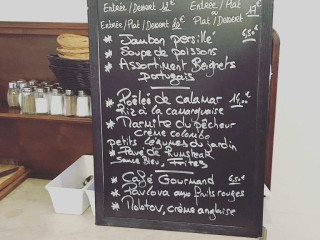 Entrée/Plat/Dessert
Entrée/Plat ou
Entrée/Plat/Dessert Plat/Dessert
* Jambon persillé 6,50€
* Soupe de poissons
* Assortiment Beignets
portugais
* Poêlée de calamar 14,00€
Riz à la camarguaise
* Marmite du pêcheur
crème colombo
petits légumes du jardin
* Pavé de Rumsteak
Sauce Bleu, Frites
* Café Gourmand 6,50€
* Pavlova aux fruits rouges
* Molotov, crème anglaise